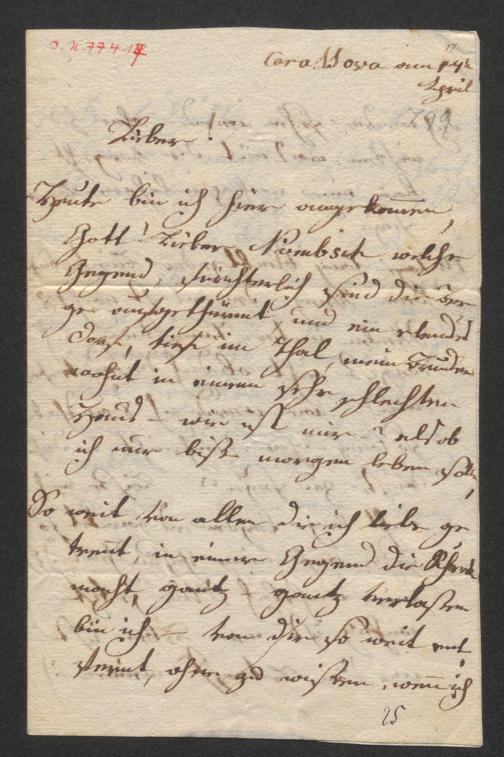 17
Cara Nova am 14t
April
799
Lieber!
Heute bin ich hier angekommen,
Gott! Lieber Niembsch welche
Gegend, fürchterlich sind die Ber
ge aufgethürmt und ein elendes
Dorf, tief im Thal, mein Bruder
wohnt in einem sehr schlechten
Hause – wie ist mir – als ob
ich nur biß morgen leben soll,
So weit von allen die ich liebe ge
trent, in einer Gegend die
macht, gantz gantz verlassen
bin ich – von dir so weit ent
fernt, ohne zu wissen, wenn ich
25